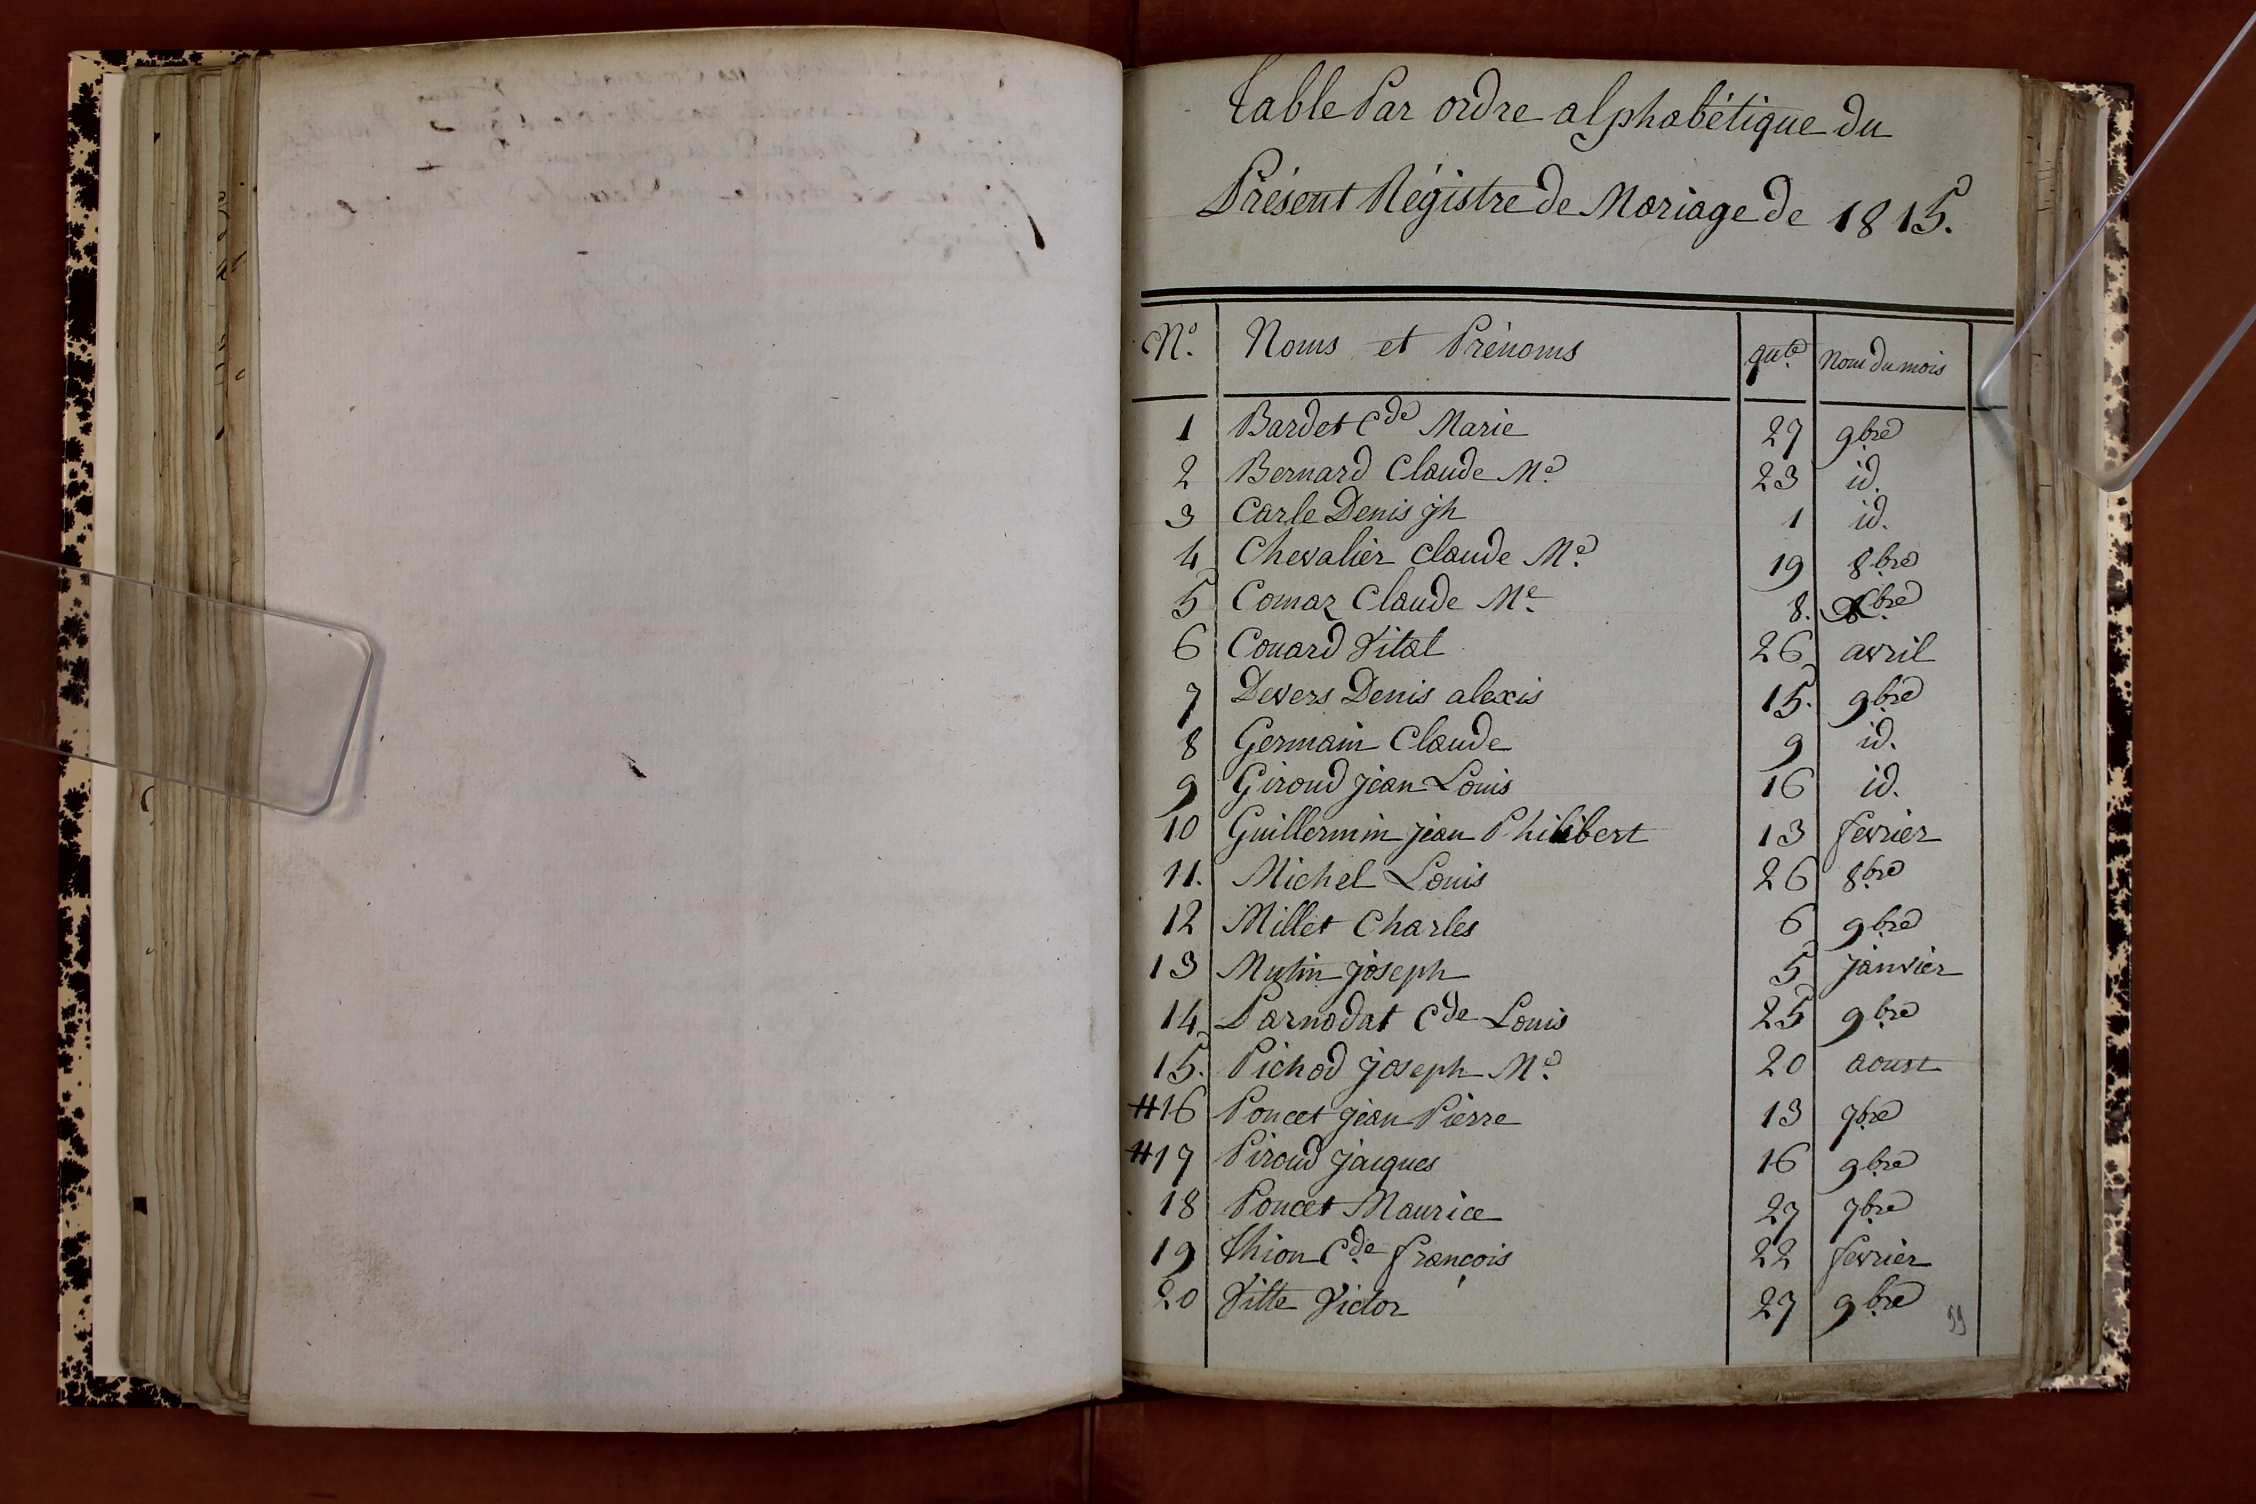 Table Par ordre alphabétique du
Présent Régistre de Mariage de 1815.
N.º Noms et Prénoms qu.te Nom du mois
1 Bardet C.de Marie 27 9bre
2 Bernard Claude M.e 23 id.
3 Carle Denis jh 1 id.
4 Chevalier Claude M.e 19 8bre
5 Comaz Claude M.e 8. Xbre
6 Couard Vital 26 avril
7 Devers Denis alexis 15. 9bre
8 Germain Claude 9 id.
9 Giroud jean Louis 16 id.
10 Guillermin jean Philibert 13 fevrier
11. Michel Louis 26 8bre
12 Millet Charles 6 9bre
13 Mutin joseph 5 janvier
14 Parnodat C.de Louis 25 9bre
15. Pichod joseph M.e 20 aoust
#16 Poncet jean Pierre 13 7bre
#17 Piroud jacques 16 9bre
18 Poncet Maurice 27 7bre
19 Thion C.de françois 22 fevrier
20 Vitte Victor 27 9bre